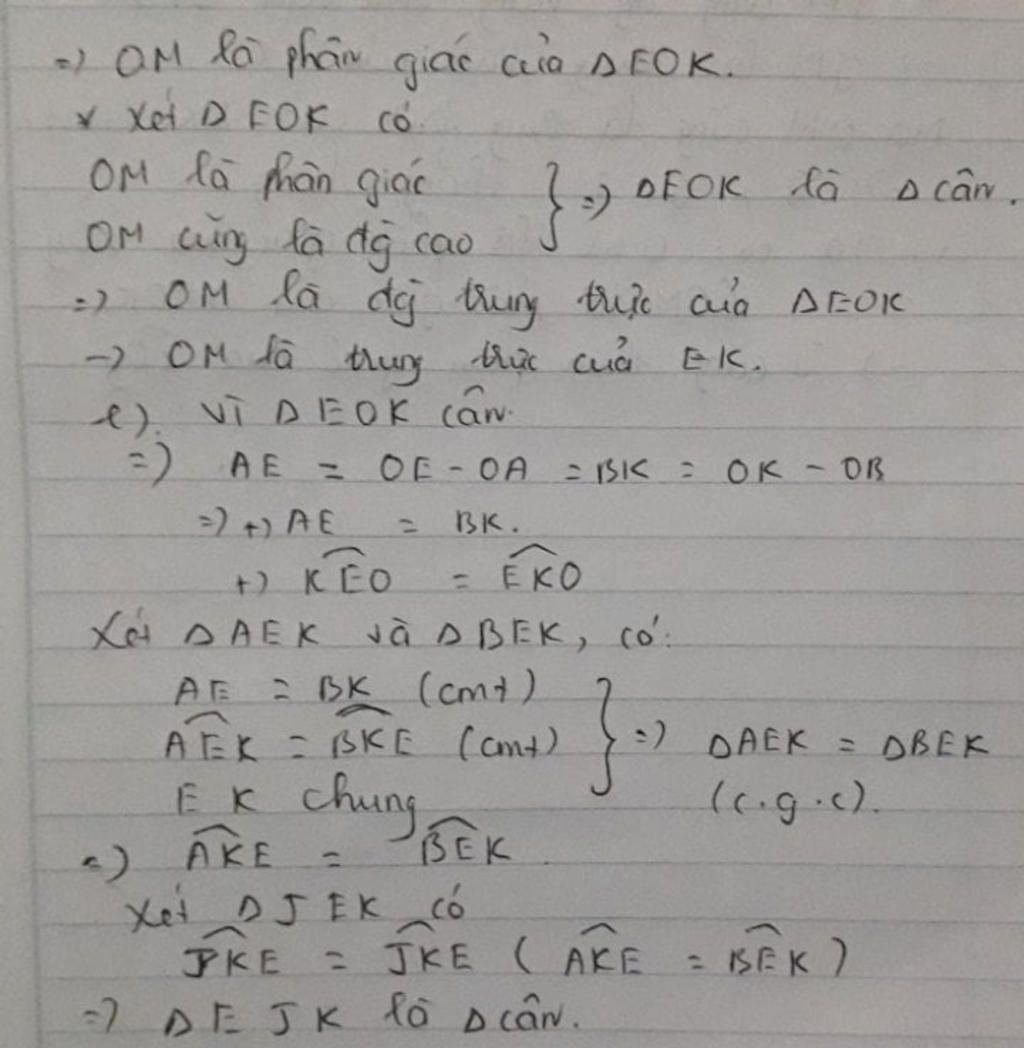 =) OM là phân giác của Δ EOK.
* Xét Δ EOK có
OM là phân giác } =) ΔEOK là Δ cân.
OM cũng là đg cao
=) OM là đg trung trực của ΔEOK
-) OM là trung trực của EK.
e). Vì Δ EOK cân.
=) AE = OE - OA = BK = OK - OB
=) +) AE = BK.
+) \widehat{KEO} = \widehat{EKO}
Xét ΔAEK và ΔBEK, có:
AE = BK (cmt)
\widehat{AEK} = \widehat{BKE} (cmt) } =) ΔAEK = ΔBEK
EK chung (c.g.c).
=) \widehat{AKE} = \widehat{BEK}
Xét ΔJEK có
\widehat{JKE} = \widehat{JKE} ( \widehat{AKE} = \widehat{BEK} )
=) ΔEJK là Δ cân.